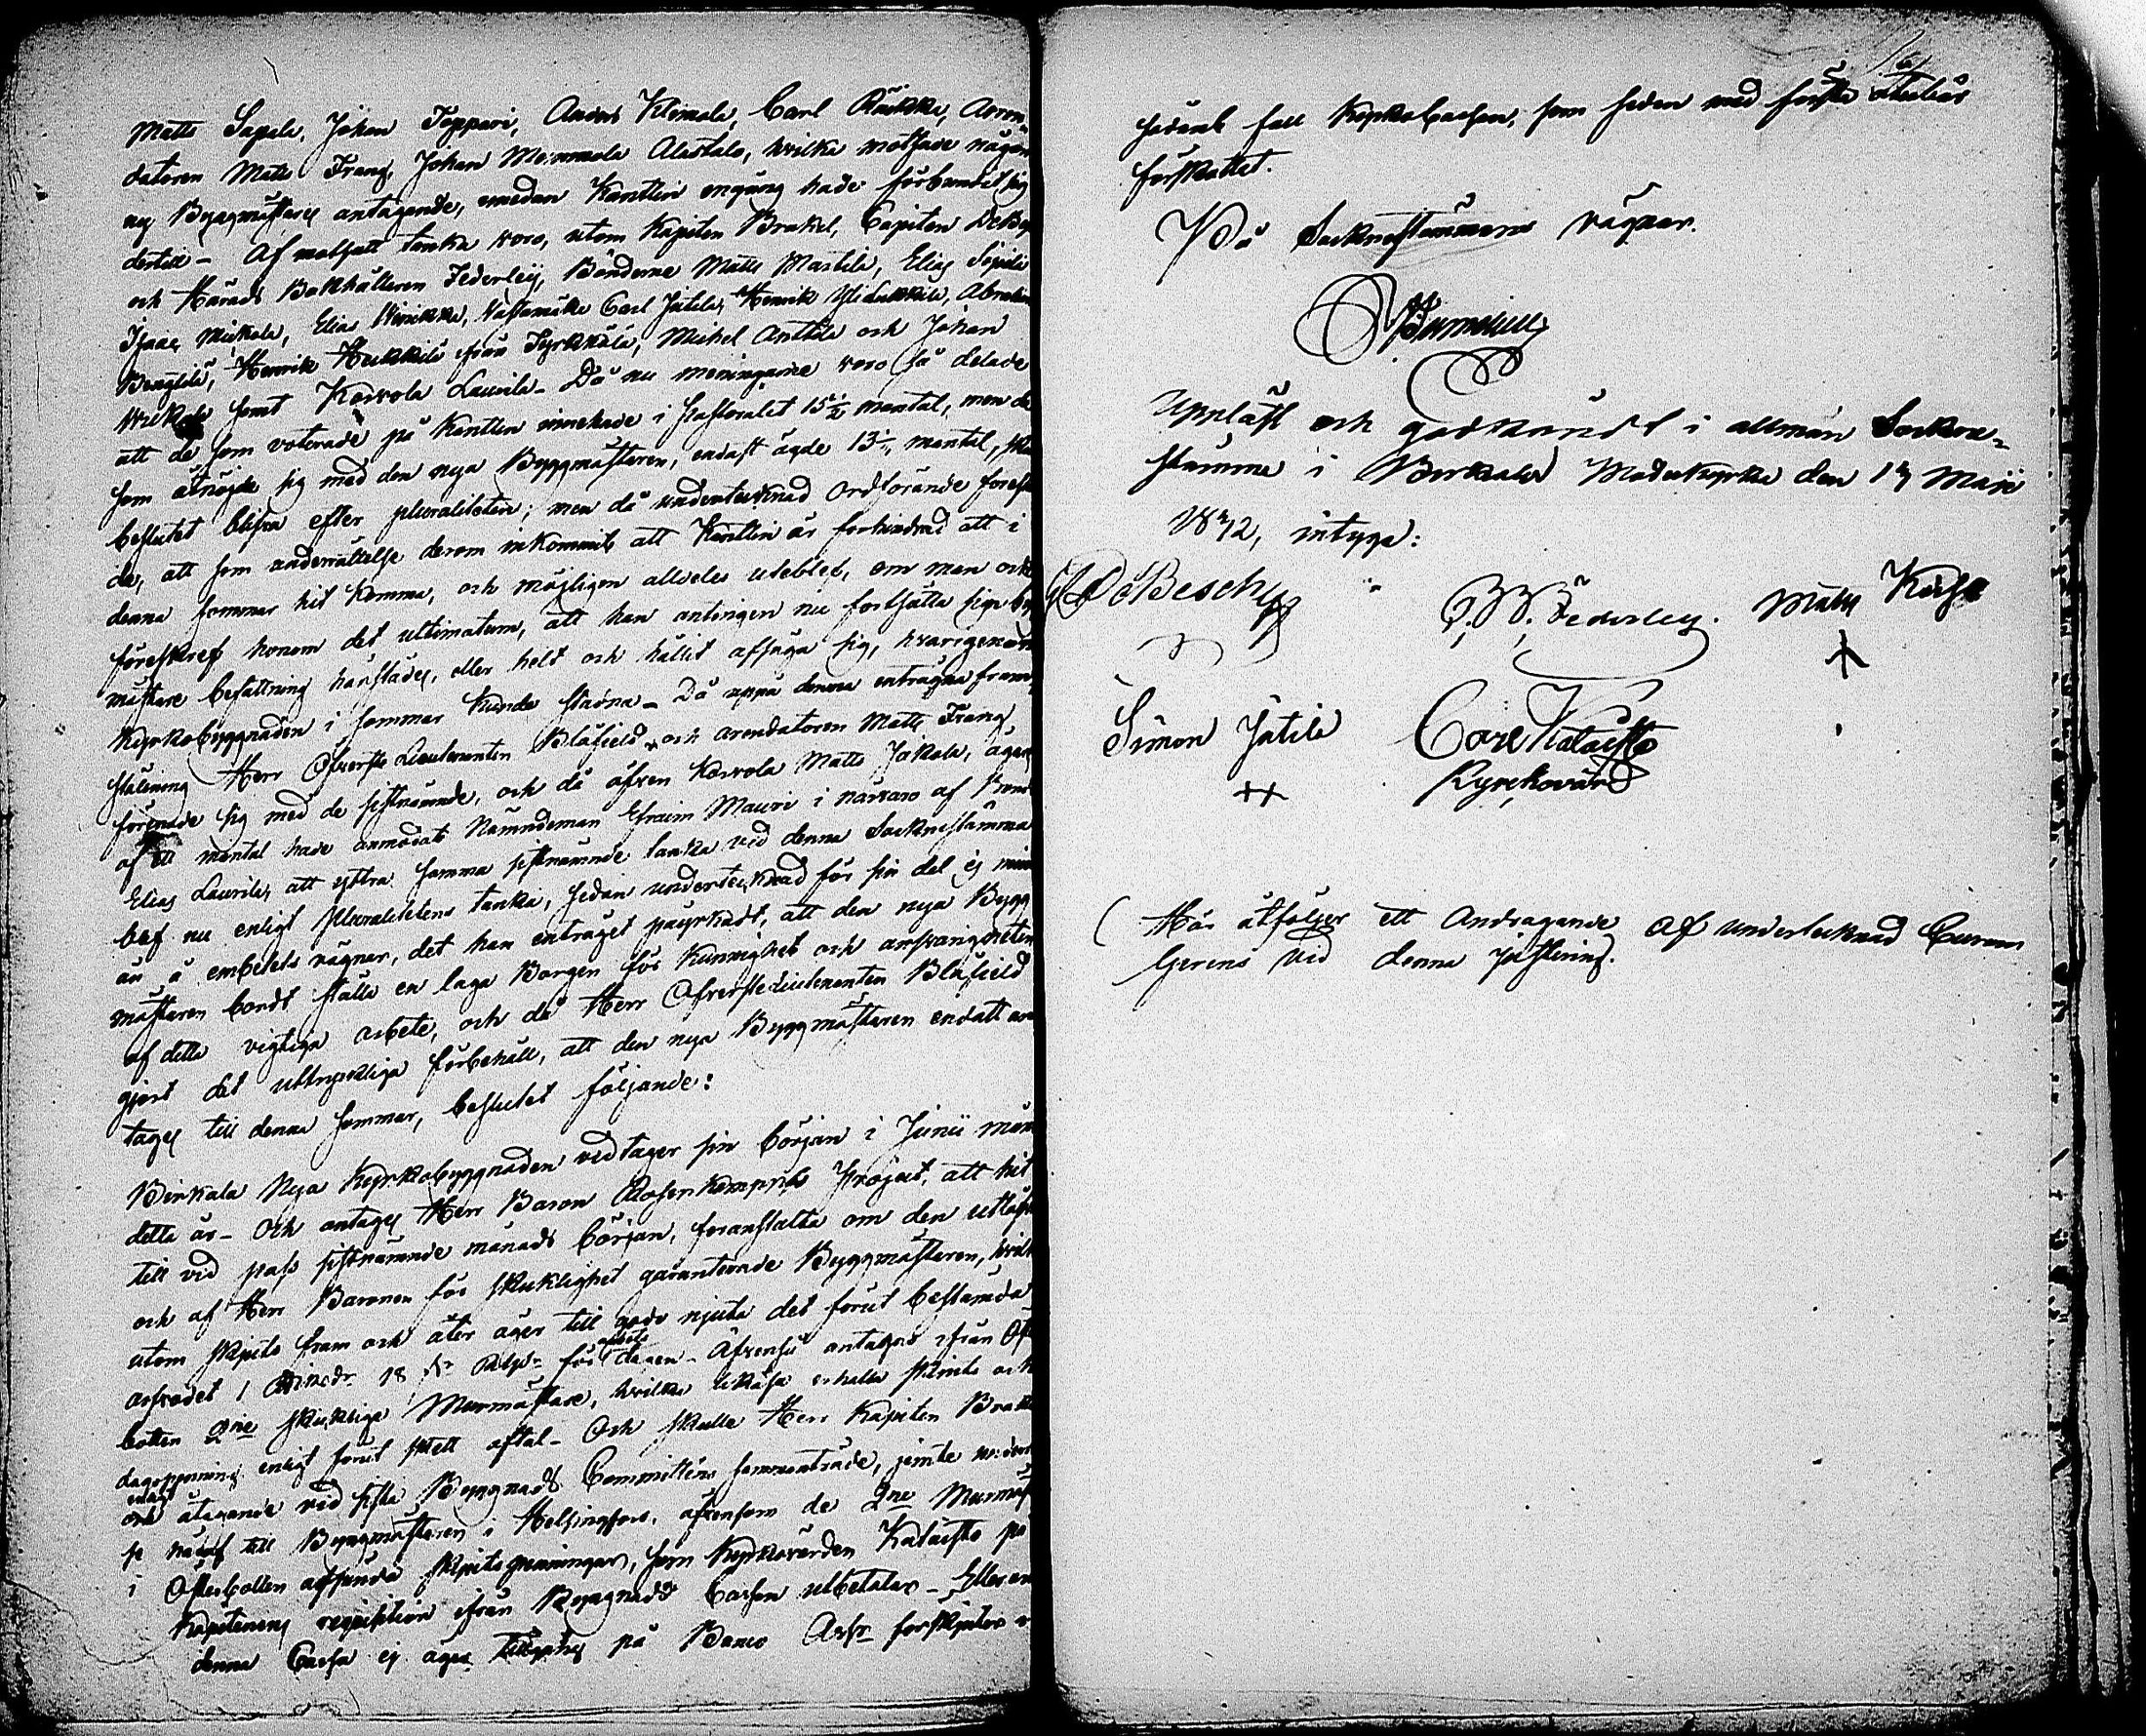 Matts Sapila, Johan Toppari, Anders Kleimola, Carl Räikkä, Arren
datoren Matts Frang, Johan Memmola Alastalo, hvilka motsade någon
ny Byggmästares antagande, emedan Kantlin engång hade förbundit sig
dertill – Af motsatt tanka voro, utom Kapiten Brakel, Capiten DeBe
och Härads Bokhållaren Federley, Bönderne Matts Mattila, Elias Sipilä
Isaac Mickola, Elias Carl Jutila, Henrik Abraham
Bengtilä, Henrik Heikkilä från Tyrkkölä, Michel Anttila och Johan
samt Korvola Laurila – Då nu meningarne voro så delade
att de som voterade på Kantlin innehade i Pastoratet 15½ mantal, men de
som åtnögde sig med den nya Byggmästaren, endast ägde 13 mantal, sku
beslutet blifva efter pluraliteten; men då undertecknad Ordförande förest
de, att som underrättelse derom inkommit att Kantlin är förhindrad att i
denna sommar hit komma, och möjligen alldeles uteblef, om man ock
föreskref honom det ultimatum, att han antingen nu fortsätta sin by
mästare befattning härstädes, eller helt och hållit afsäga sig, hvarigenom
Kyrkobyggnaden i sommar kunde stadna – Då uppå denna enträgna fram
ställning Herr Öfverste Lieutenanten Blåfield och arendatoren Matts Frang
förenade sig med de sistnämnde, och då äfven Korvola Matts Jakola, ägare
af ett mantal hade anmodat Nämndeman Efraim Mauri i närvaro af Bond
Elias Laurila, att yttra samma sistnämnde tanka vid denna Socknestämma
blef nu enligt pluralitetens tanka, sedan undertecknad för sin del ej min
än å embetets vägnar, det han enträget påyrkadt, att den nya Bygg
mästaren bordt ställa en laga Borgen för kunnighet och ansvarigheten
af detta vigtiga arbete, och då Herr Öfverstelieutenanten Blåfield
gjort det uttryckliga förbehåll, att den nya Byggmästaren endast an
tages till denna sommar, beslutet följande:
Birkala Nya Kyrkobyggnaden vedtager sin början i Junii mån
detta år – Och antages Herr Baron Rosenkampffs project, att hit
till vid pass sistnämnde månads början, föranstalta om den utlåf
och af Herr Baronen för skicklighet garanterade Byggmästaren, hvilk
utom skjuts fram och åter äger till godo njuta det förut bestämda
arfvodet 1 18 för arbets dagen – Äfvenså antages ifrån Ös
botten 2ne skickliga Murmästare, hvilka likaså erhålla skjuts och
dagspenning enligt förut skett aftal – Och skulle Herr Kapiten Brakel
enligt åtagande vid sista Byggnads Committéns sammanträde, jemte under
till Byggmästaren i Helsingfors, äfvensom de 2ne Murmäst
i Österbotten afsända skjutspenningar, som Kyrkovärden Kalaisto på
Kapitenens requisition ifrån Byggnads Cassan utbetalar – Eller om
denna Cassa ej äger tillgång på Banco förskjuter
sådant fall Kyrkocassan, som sedan med första
förskottet.
På Socknestämmans vägnar.
Uppläst och godkändt i allmän Sockne-
stämma i Birkala Moderkyrka den 1 Maji
1842, intyga:
DeBesche G. W. Federley. Matts
Simon Jutila Carl Kalaisto
++ Kyrckovärd
( Här åtföljer ett Andragande af undertecknad Curam
Gerens vid denna justering.